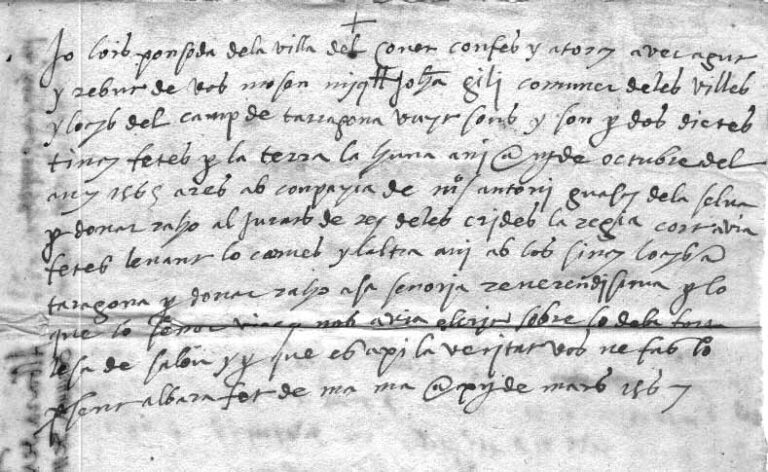 Jo lois ponsoda dela villa del
confes y atorch aver agut
y rebut de vos mosen johã gili comuner deles villes
y lochs del camp de tarragona vuyt sous y son p dos dietes
tinch fetes p la terra la huna ani @ de octubre del
any 1565 ab conpayia de antoni dela selva
p donar raho al jurats de deles crides la regia cort avia
fetes levant lo y laltra ani ab los sinch lochs a
taragona p donar raho a sa senorja reverendisima p lo
que lo senor nos avia sobre so dela
de salou y p que es axi la veritat vos ne fas lo
psent albara fet de ma ma @ de mars 1567